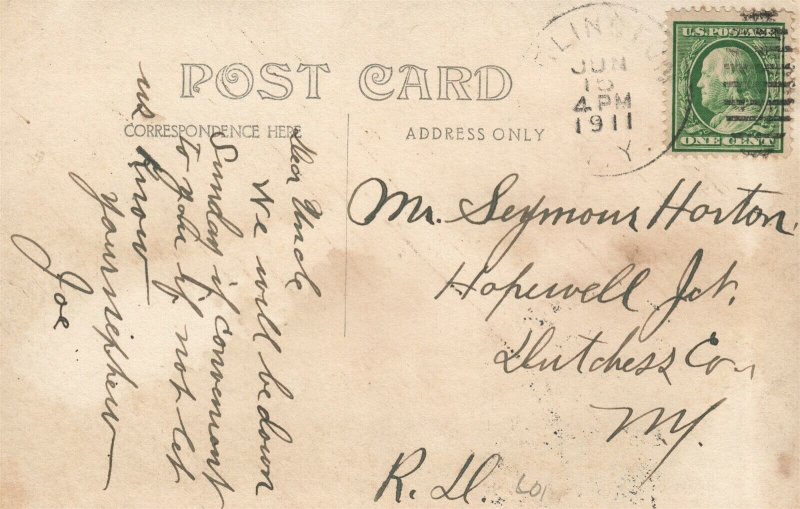 POST CARD
CORRESPONDENCE HERE
ADDRESS ONLY
Dear Uncle
We will be down
Sunday if convenient
to you if not let
us know
your nephew
Joe
Mr. Seymour Horton
Hopewell Jct.
Dutchess Co.,
NY
R. D.
LINGTON
JUN
15
4 PM
1911
Y.
U.S. POSTAGE
ONE CENT